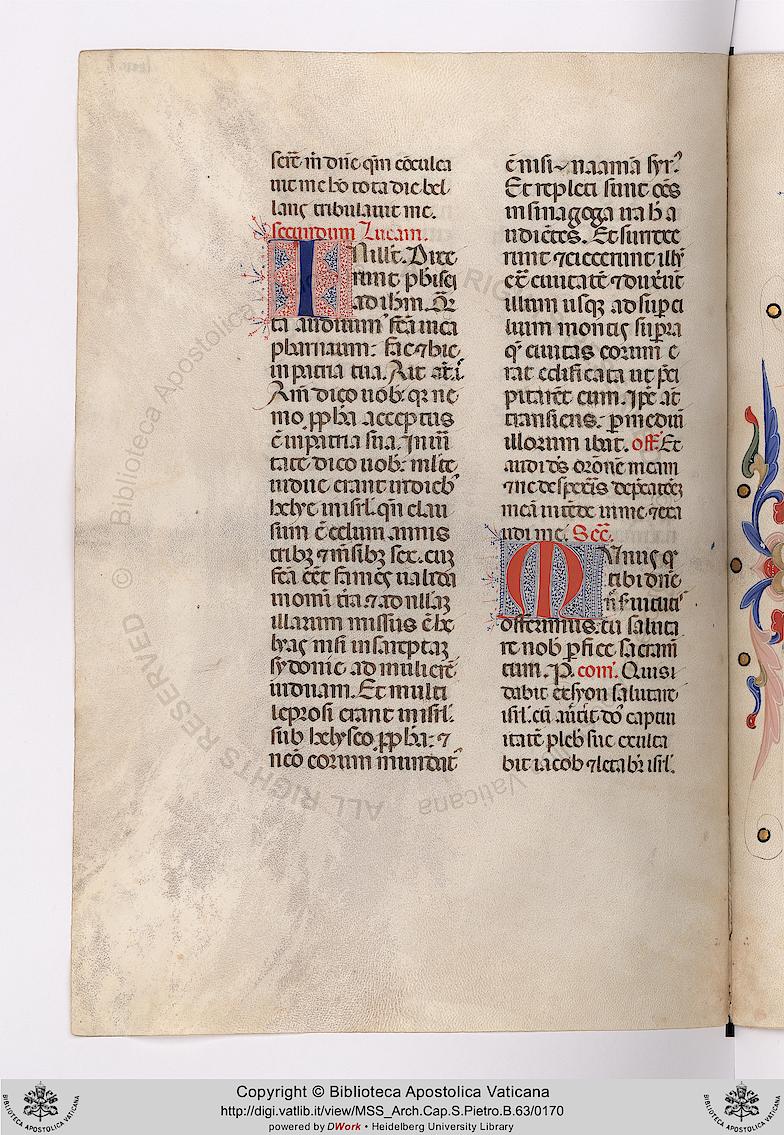 sere͞ m̄ dn̄e qm̄ c̄oculca
uit me hō tota die bel
lans tribulauit me.
secundum Lucam.
IN ill̄t. Dixe
runt pharisei
ad ihm̄. Q͞r
ta audium᷒ fc̄a in ca
pharnaum: fac ⁊ hic
in patria tua. Ait āt i
Am̄ dico uob. qr ne
mo ꝓph̄a acceptus
ē in patria sua. In ueri
tate dico uob. ml̄te
uidue erant in dieb᷒
helye in isrl. qn̄ clau
sum ē celum annis
tribꝫ ⁊ m̄sibꝫ sex. cuꝫ
fc̄a ēēt fames ualida
in om̄i tr̄a ⁊ ad nllaꝫ
illarum missus ē he
lyas nisi in sareptaꝫ
sydonie ad mulierē
uiduam. Et multi
leprosi erant in isrl.
sub helyseo ꝓph̄a: ⁊
nēo eorum mundat᷒
ē nisi naamā syr᷒
Et repleti sunt oēs
in sinagoga ira h̄ a
udientes. Et surrexe
runt ⁊ eiecerunt illū
ex̄ ciuitatē ⁊ duxerūt
illum usqꝫ ad suꝑci
lium montis supra
qd̄ ciuitas eorum e
rat edificata ut p̄ci
pitarēt eum. Ipē āt
transiens ꝑ mediū
illorum ibat. off. Et
audi ds̄ orōnē meam
⁊ ne despexeris dep̄catōeꝫ
meā intēde in me ⁊ exa
udi me. Sec̄.
MUnus qd̄
tibi dn̄e
n̄r̄e seruitutis
offerimus. tu saluta
re nob ꝑfice sacram̄
tum. P. com̄. Quis
dabit ex syon salutare
isrl. cū au᷒tit dō captiu
itatē pleb᷒ sue exulta
bit iacob ⁊ letabr̄ isrl.
Biblioteca Apostolica Vaticana
© ALL RIGHTS RESERVED
Copyright © Biblioteca Apostolica Vaticana
http://digi.vatlib.it/view/MSS_Arch.Cap.S.Pietro.B.63/0170
powered by DWork • Heidelberg University Library
BIBLIOTECA APOSTOLICA VATICANA
BIBLIOTECA APOSTOLICA VATICANA